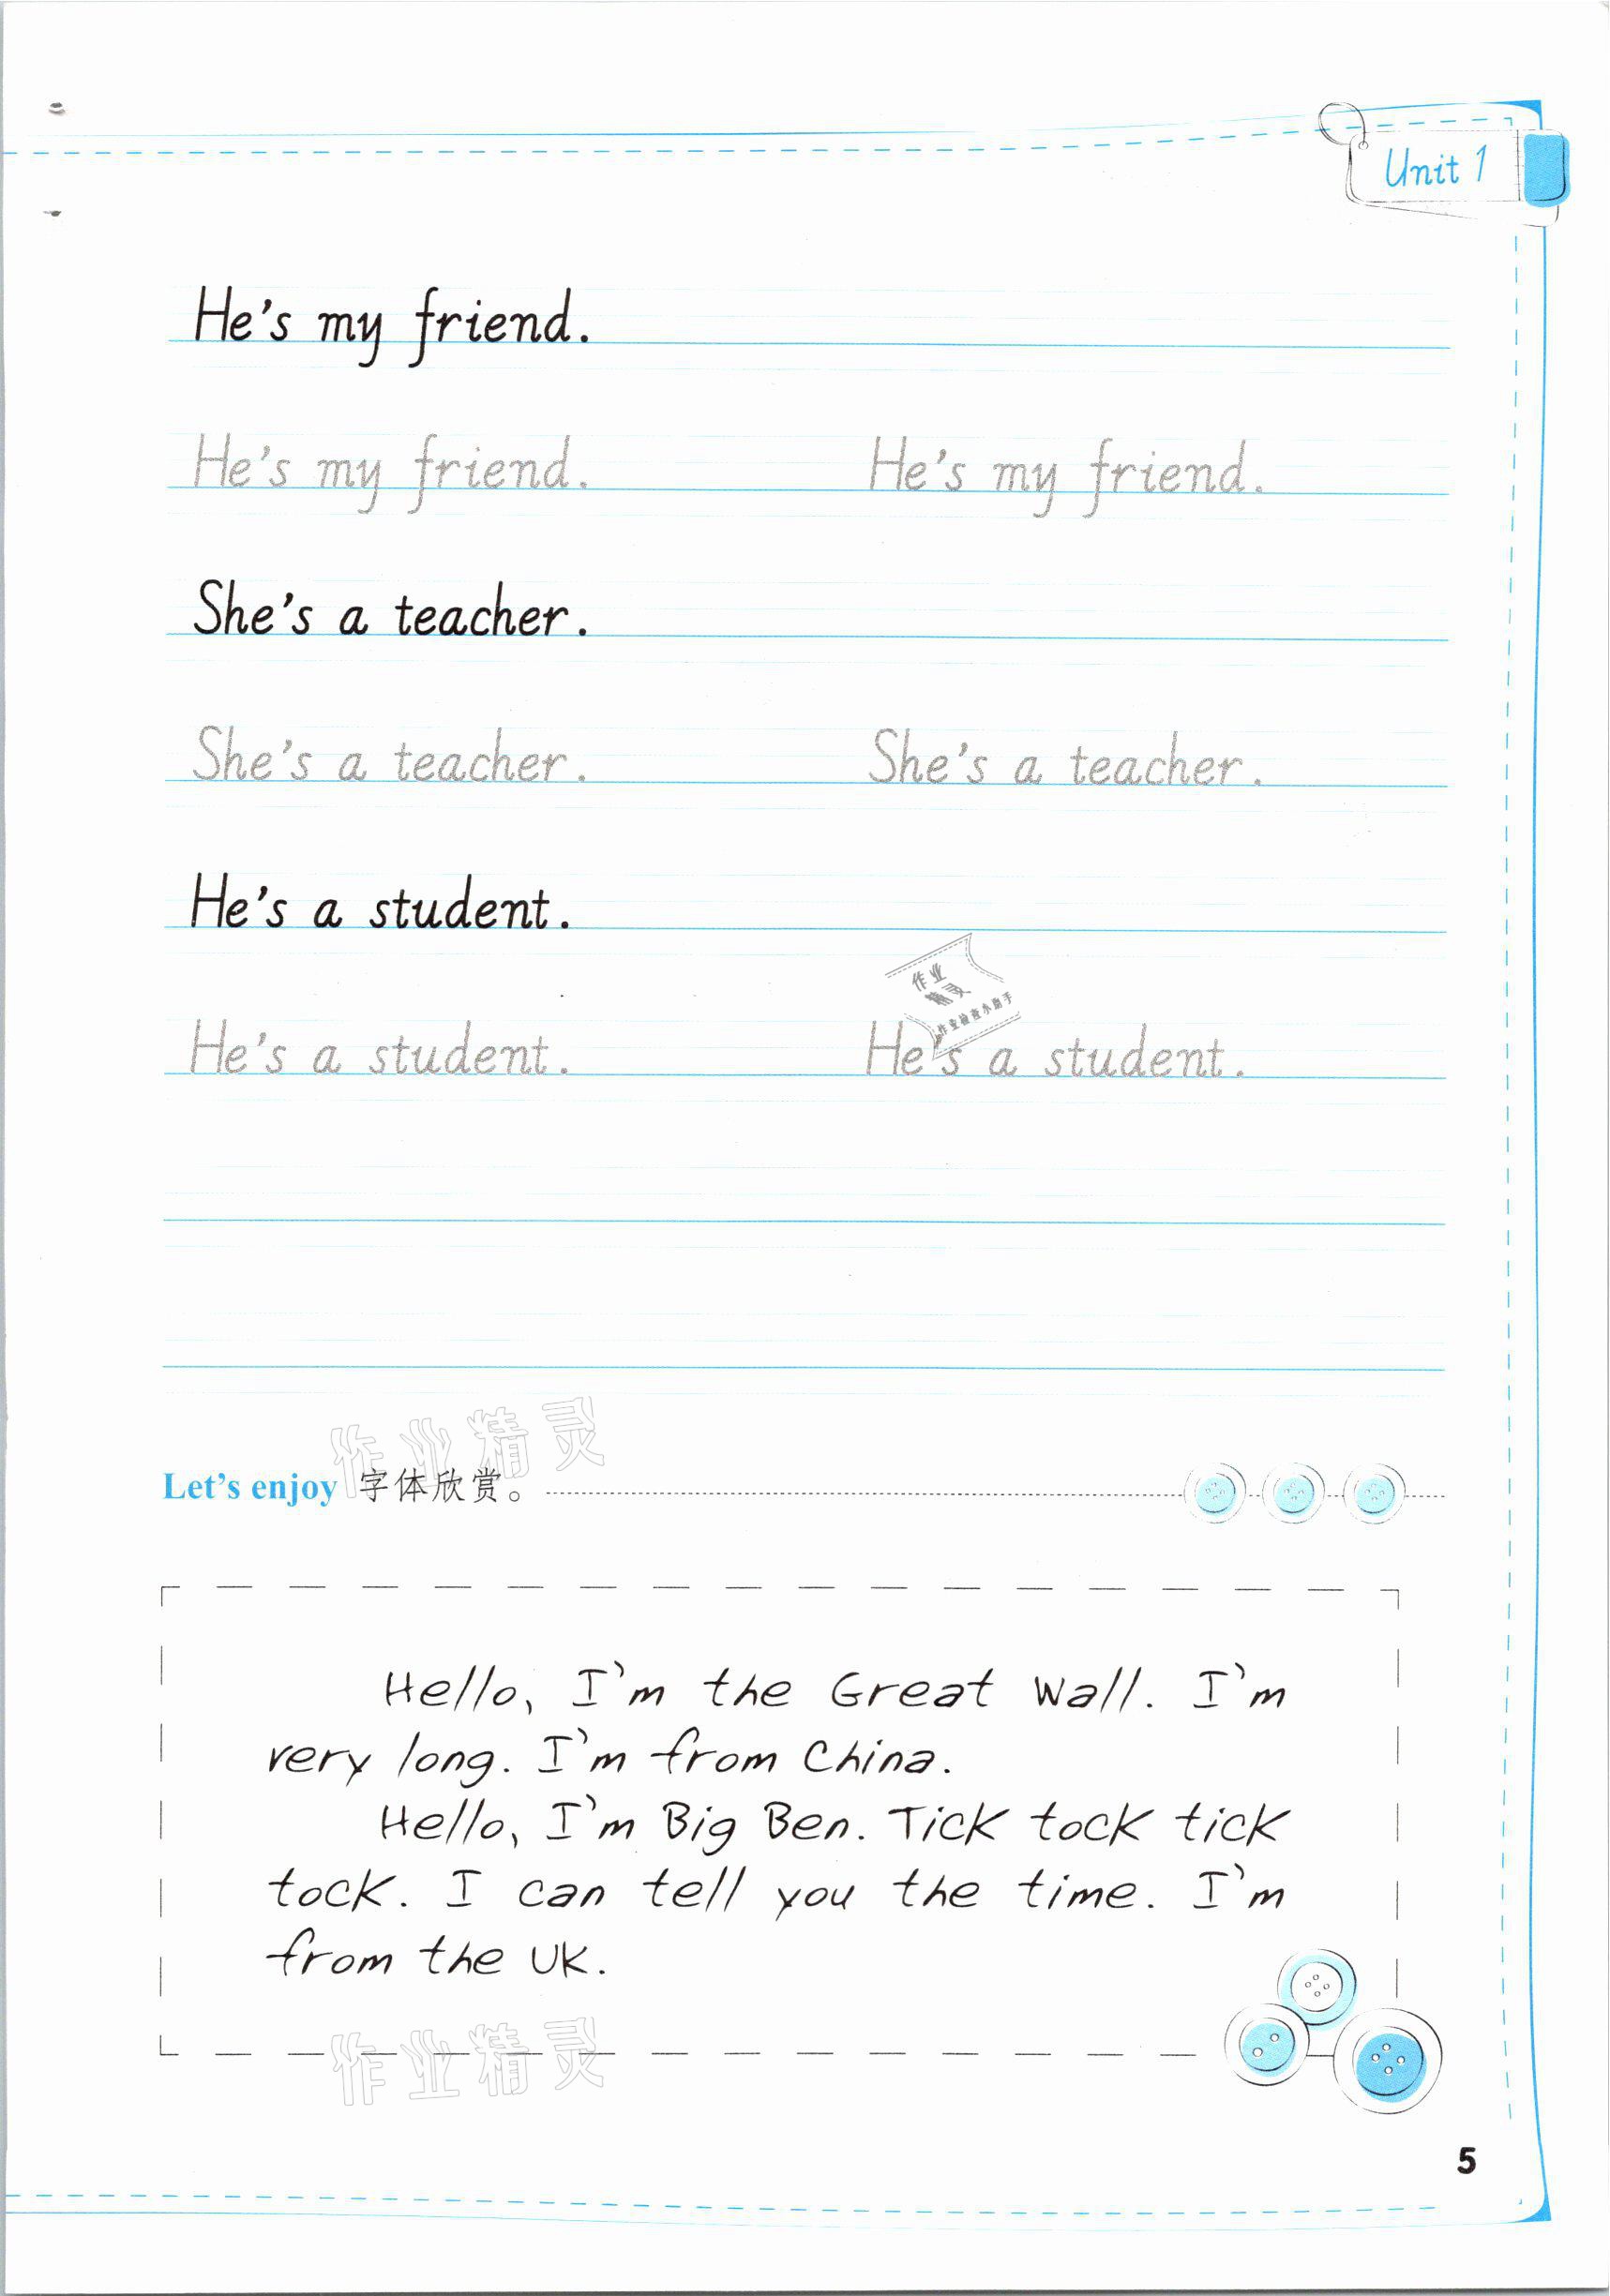 Unit 1
He's my friend.
He's my friend. He's my friend.
She's a teacher.
She's a teacher. She's a teacher.
He's a student.
作业
精灵
作业检查小助手
He's a student. He's a student.
作业精灵
Let's enjoy 字体欣赏。
Hello, I'm the Great Wall. I'm
very long. I'm from China.
Hello, I'm Big Ben. Tick tock tick
tock. I can tell you the time. I'm
from the UK.
作业精灵
5